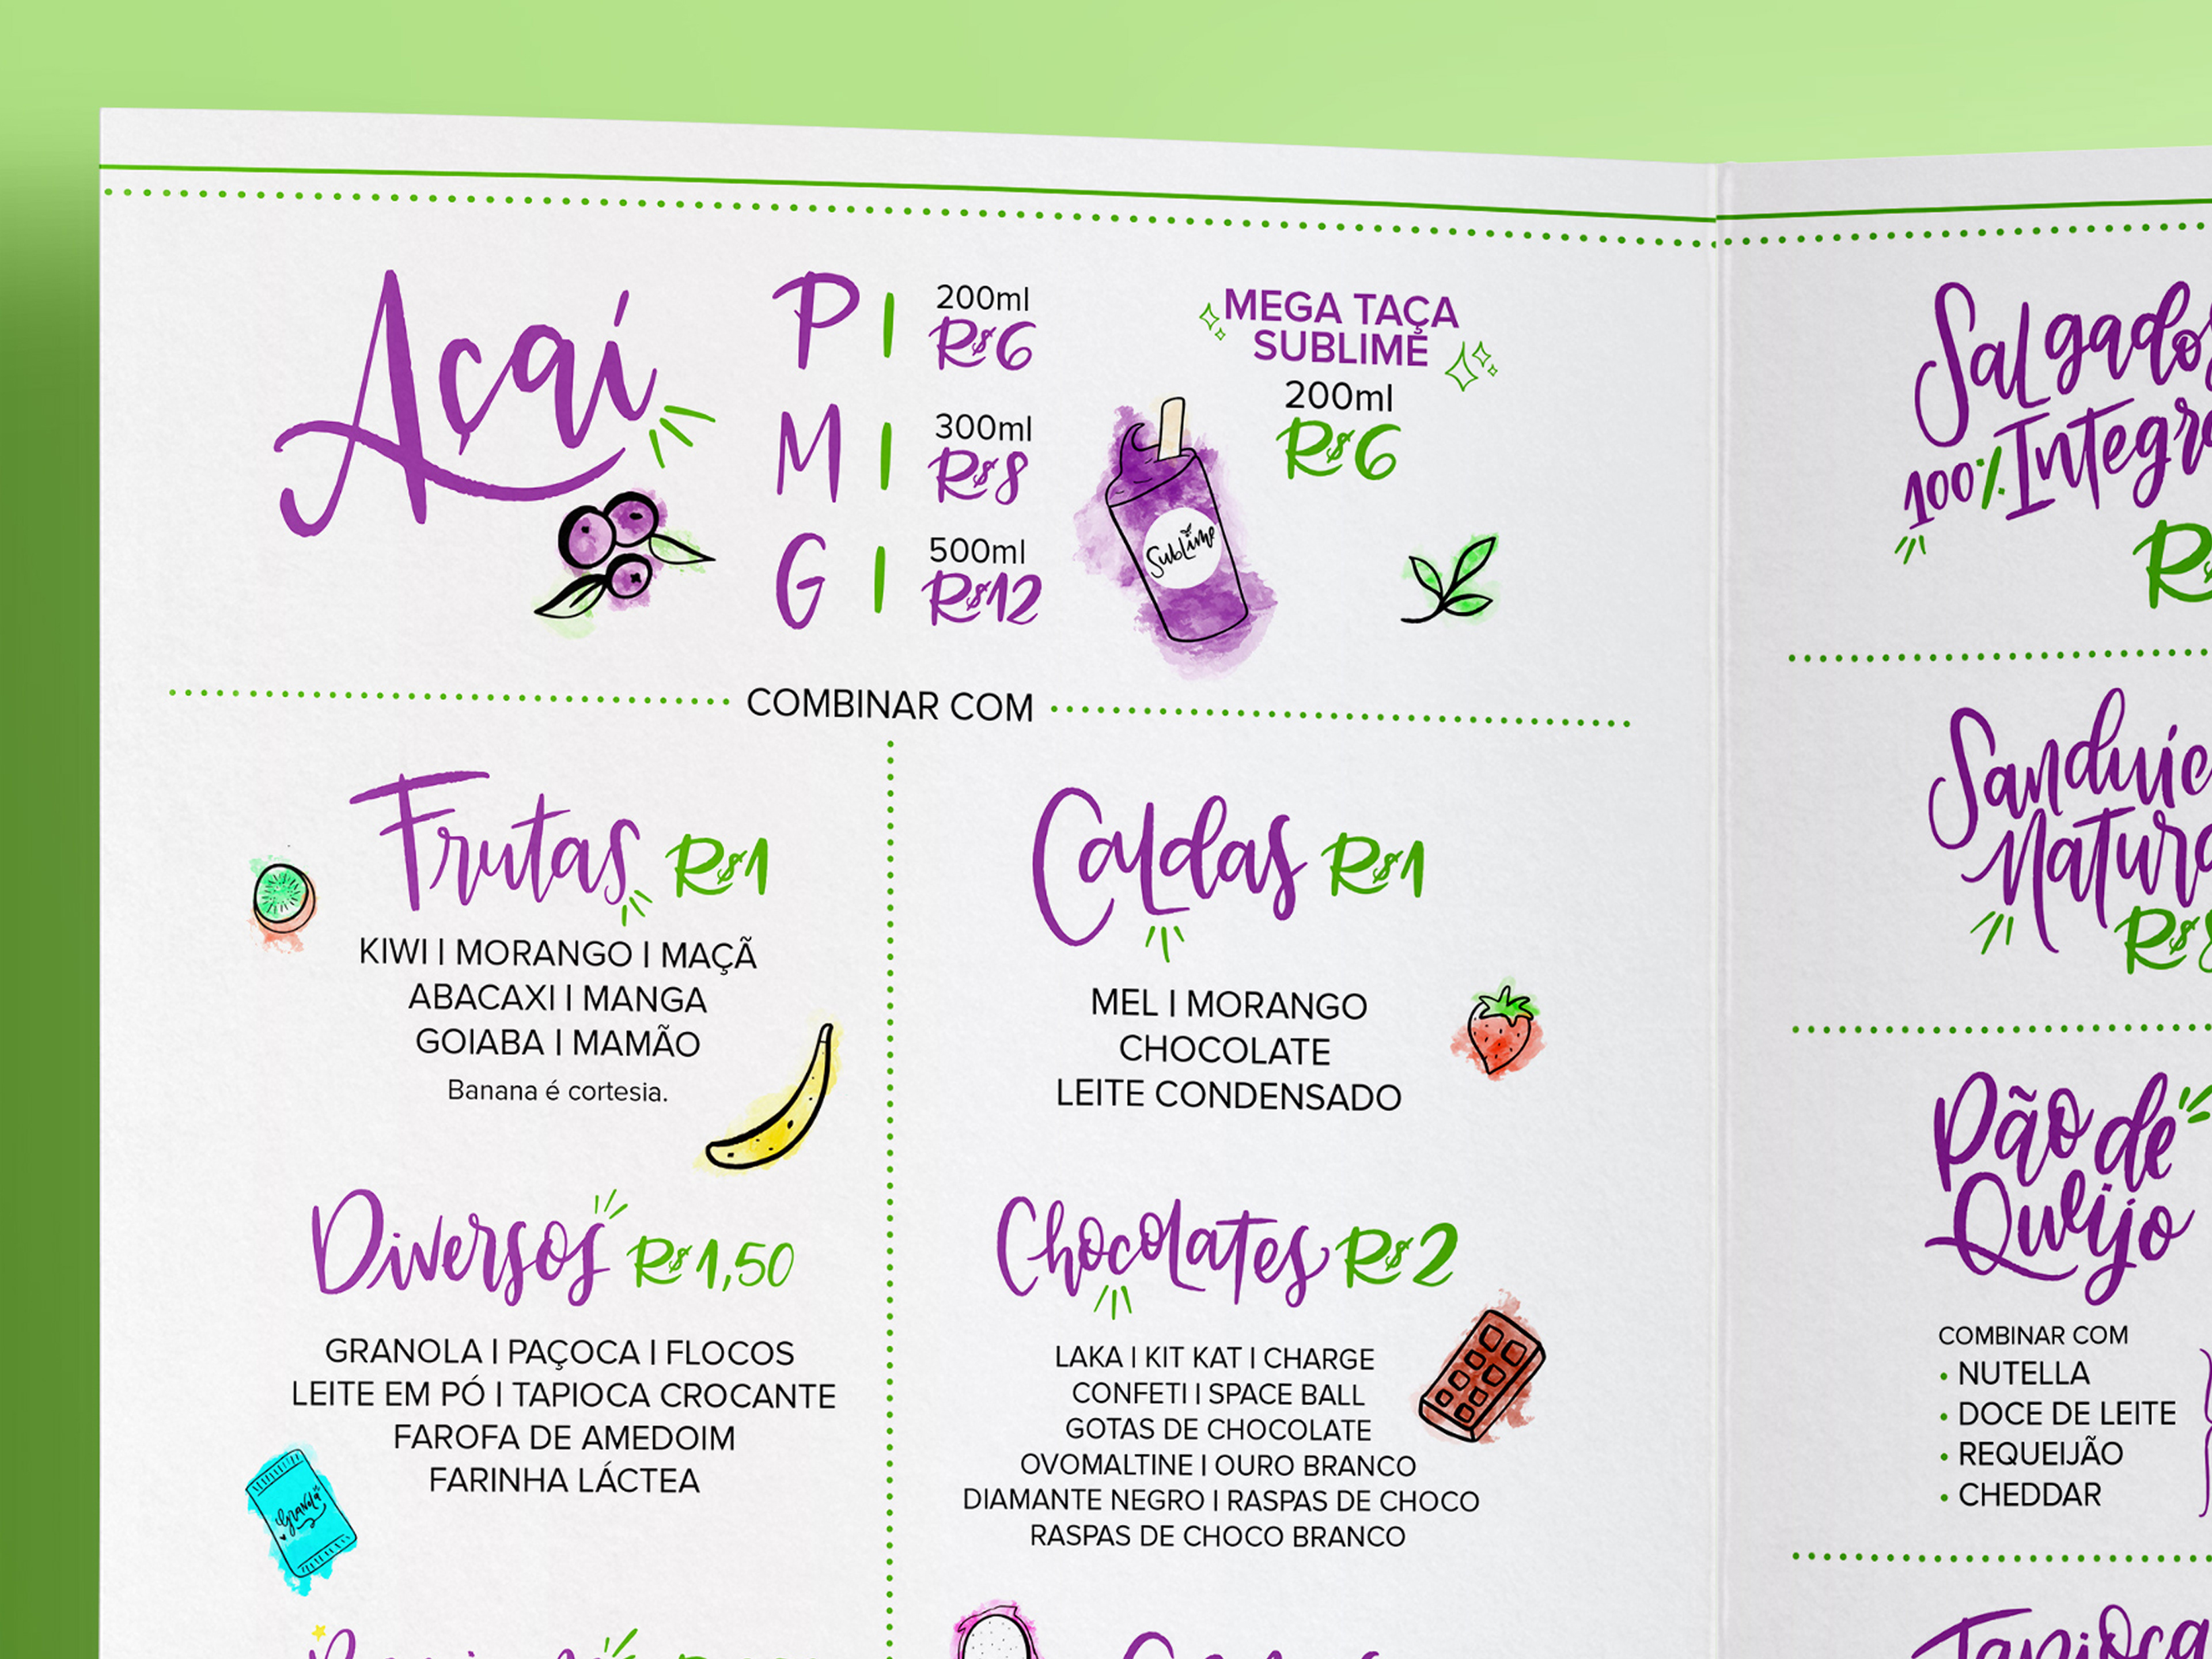 Açaí
P | 200ml
R$6
M | 300ml
R$8
G | 500ml
R$12
MEGA TAÇA
SUBLIME
200ml
R$6
Sublime
COMBINAR COM
Frutas R$1
KIWI | MORANGO | MAÇÃ
ABACAXI | MANGA
GOIABA | MAMÃO
Banana é cortesia.
Caldas R$1
MEL | MORANGO
CHOCOLATE
LEITE CONDENSADO
Diversos R$1,50
GRANOLA | PAÇOCA | FLOCOS
LEITE EM PÓ | TAPIOCA CROCANTE
FAROFA DE AMEDOIM
FARINHA LÁCTEA
Granola
Chocolates R$2
LAKA | KIT KAT | CHARGE
CONFETI | SPACE BALL
GOTAS DE CHOCOLATE
OVOMALTINE | OURO BRANCO
DIAMANTE NEGRO | RASPAS DE CHOCO
RASPAS DE CHOCO BRANCO
Salgados
100% Integr
R$
Sanduíc
Natur
R$
Pão de
Queijo
COMBINAR COM
• NUTELLA
• DOCE DE LEITE
• REQUEIJÃO
• CHEDDAR
Tapioca